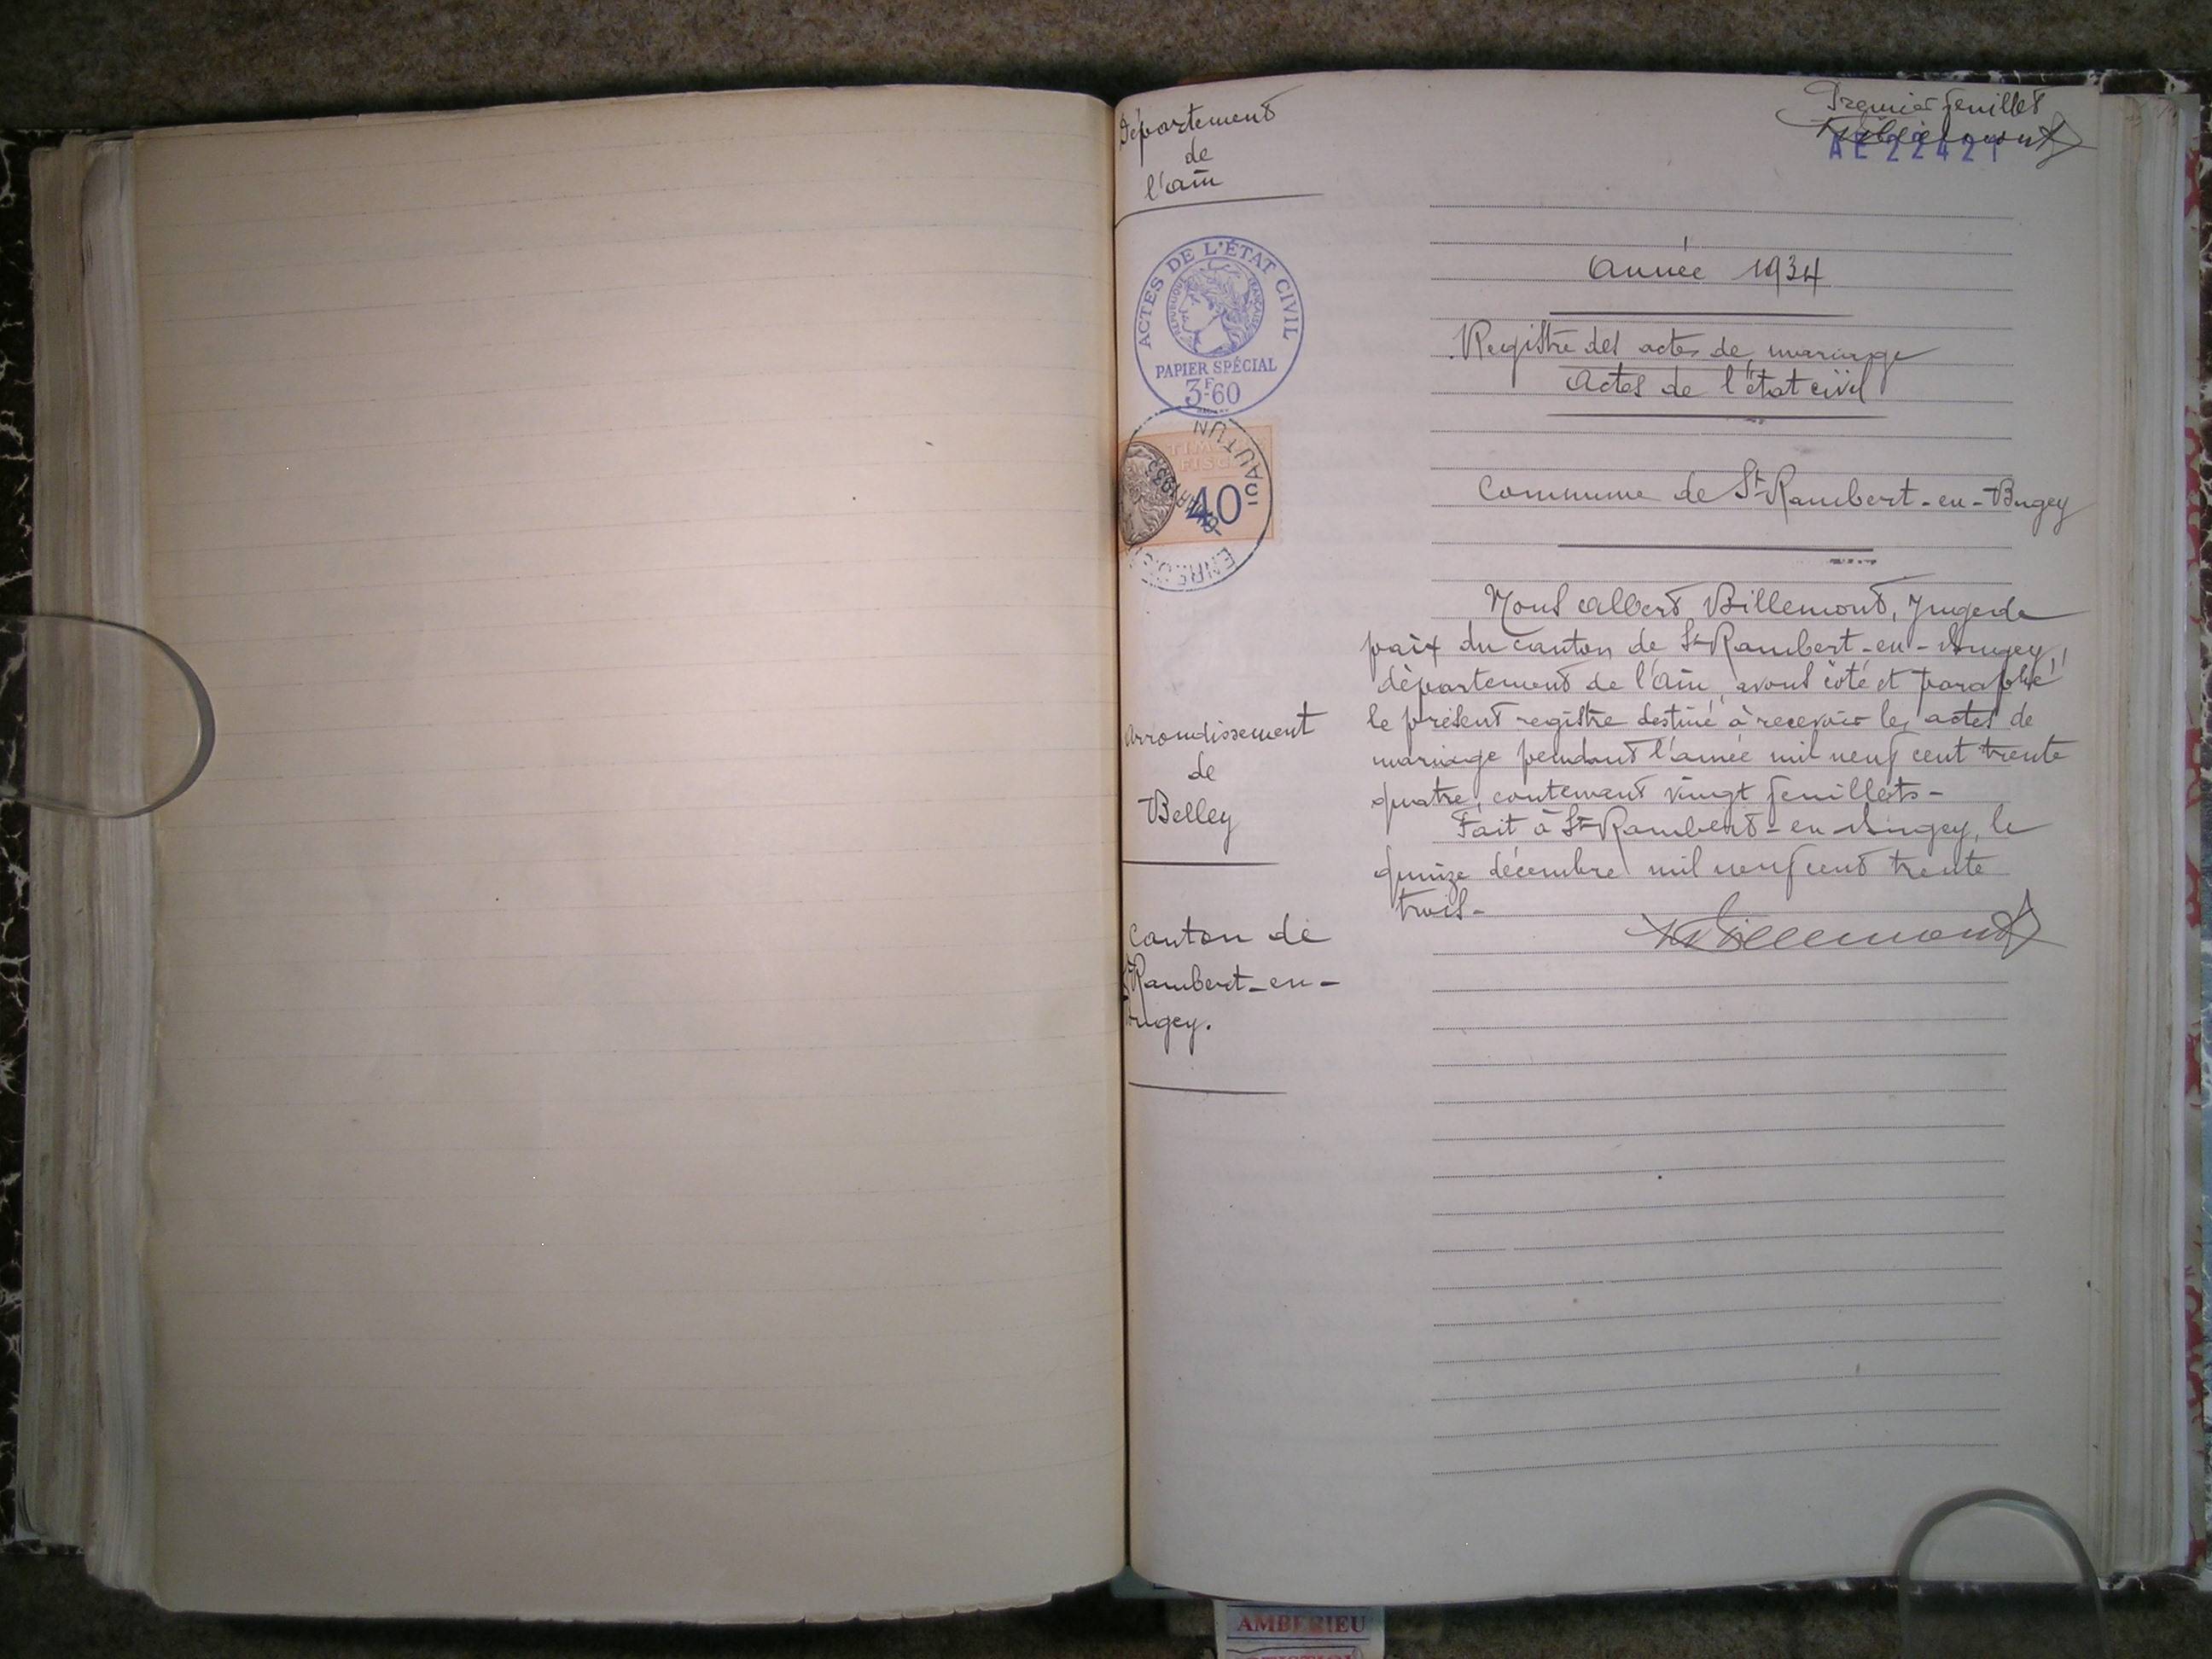 Premier feuillet
Billemont
AE 2242
Département
de
l'Ain
ACTES DE L'ÉTAT CIVIL
RÉPUBLIQUE FRANÇAISE
PAPIER SPÉCIAL
3F60
AUTUN
40c
Année 1934
Registre des actes de mariage
Actes de l'état civil
Commune de St-Rambert-en-Bugey
Nous Albert Billemont, Juge de
paix du canton de St-Rambert-en-Bugey,
département de l'Ain, avons côté et paraphé
le présent registre destiné à recevoir les actes de
mariage pendant l'année mil neuf cent trente
quatre, contenant vingt feuillets-
Fait à St-Rambert-en-Bugey, le
quinze décembre mil neuf cent trente
trois-
Billemont
Arrondissement
de
Belley
Canton de
St Rambert-en-
Bugey.
AMBERIEU